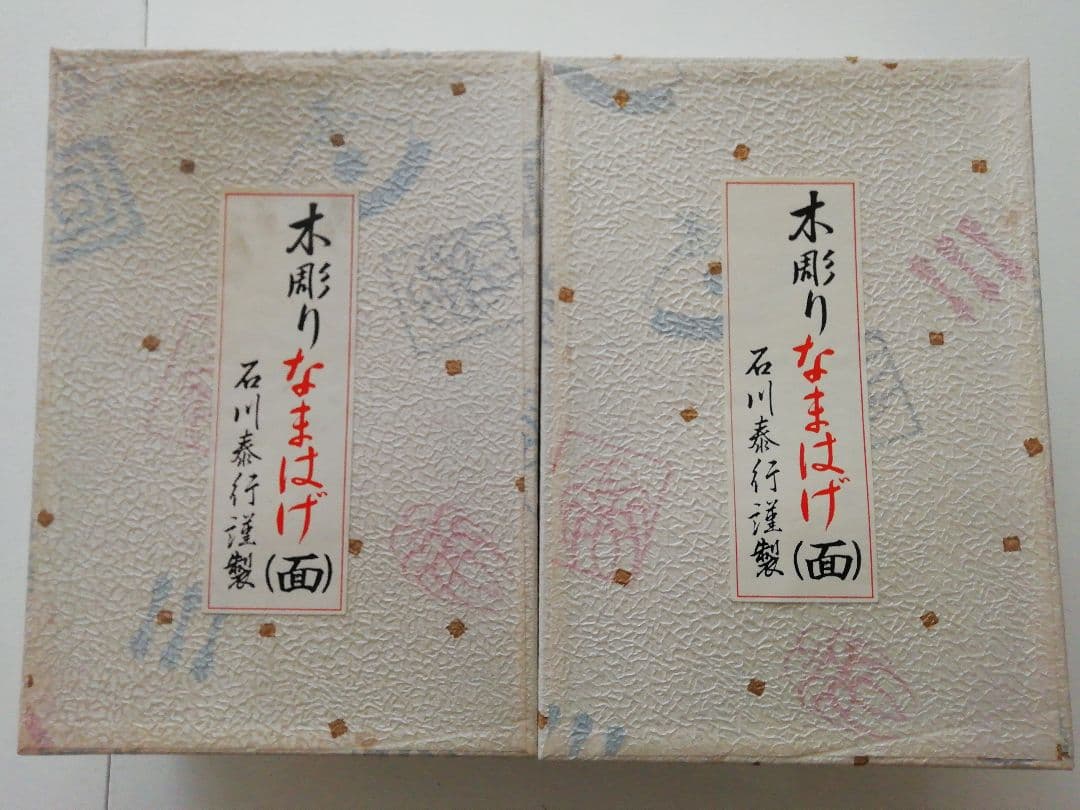 木彫りなまはげ(面)
石川泰行謹製
木彫りなまはげ(面)
石川泰行謹製